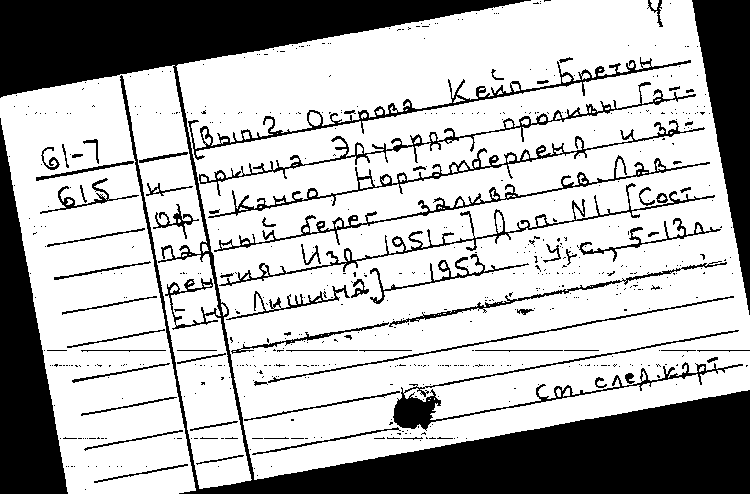 4
[Вып.2. Острова Кейп-Бретон
61-7
615
и принца Эдуарда, проливы Гат-
оф-Кансо, Нортамберленд и за-
падный берег залива св. Лав-
рентия. Изд. 1951г.] Доп. N1. [Сост.
Е.Ю. Лишина]. 1953. 4 с., 5-13 л.
см. след. карт.